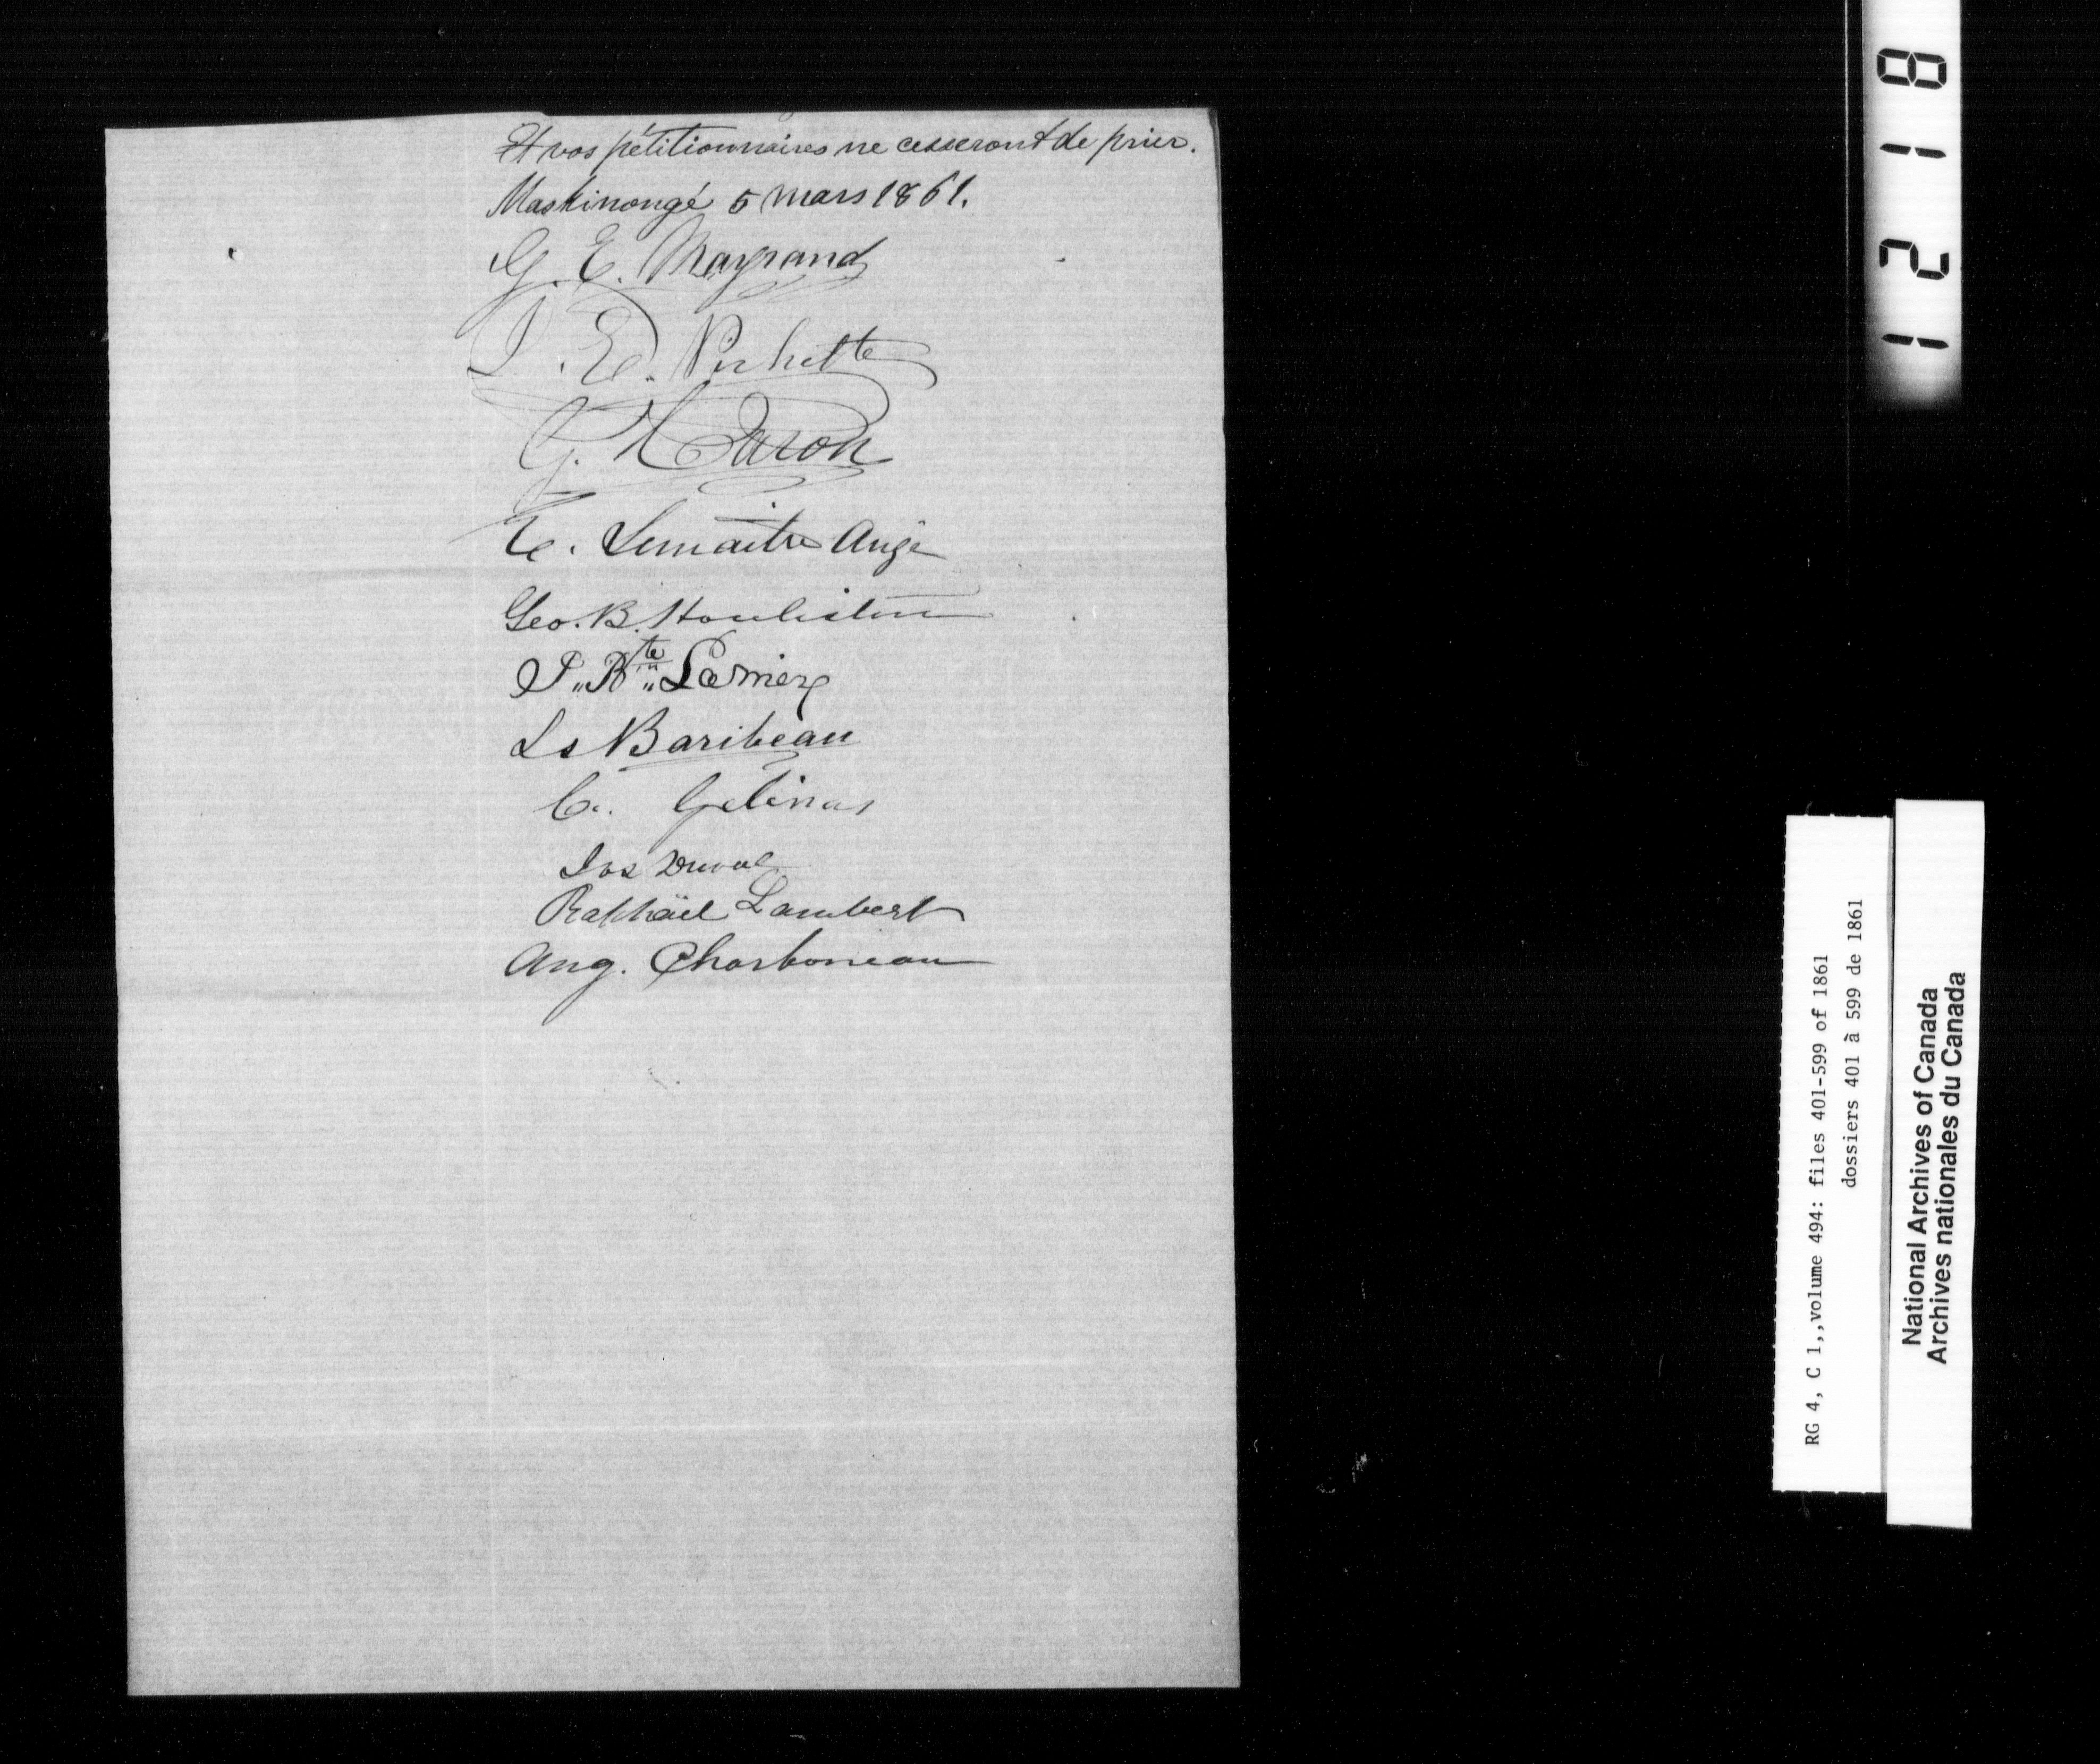 Et vos pétitionnaires ne cesseront de prier.
Maskinongé 5 mars 1861.
G. E. Mayrand
E. Pichette
G. Caron
E. Lemaitre Augé
Geo. B. Houliston
J. Bte
Ls Baribeau
C. Gélinas
Jos Duval
Raphaël Lambert
Aug. Charboneau
1218
RG 4, C 1,,volume 494: files 401-599 of 1861
dossiers 401 à 599 de 1861
National Archives of Canada
Archives nationales du Canada